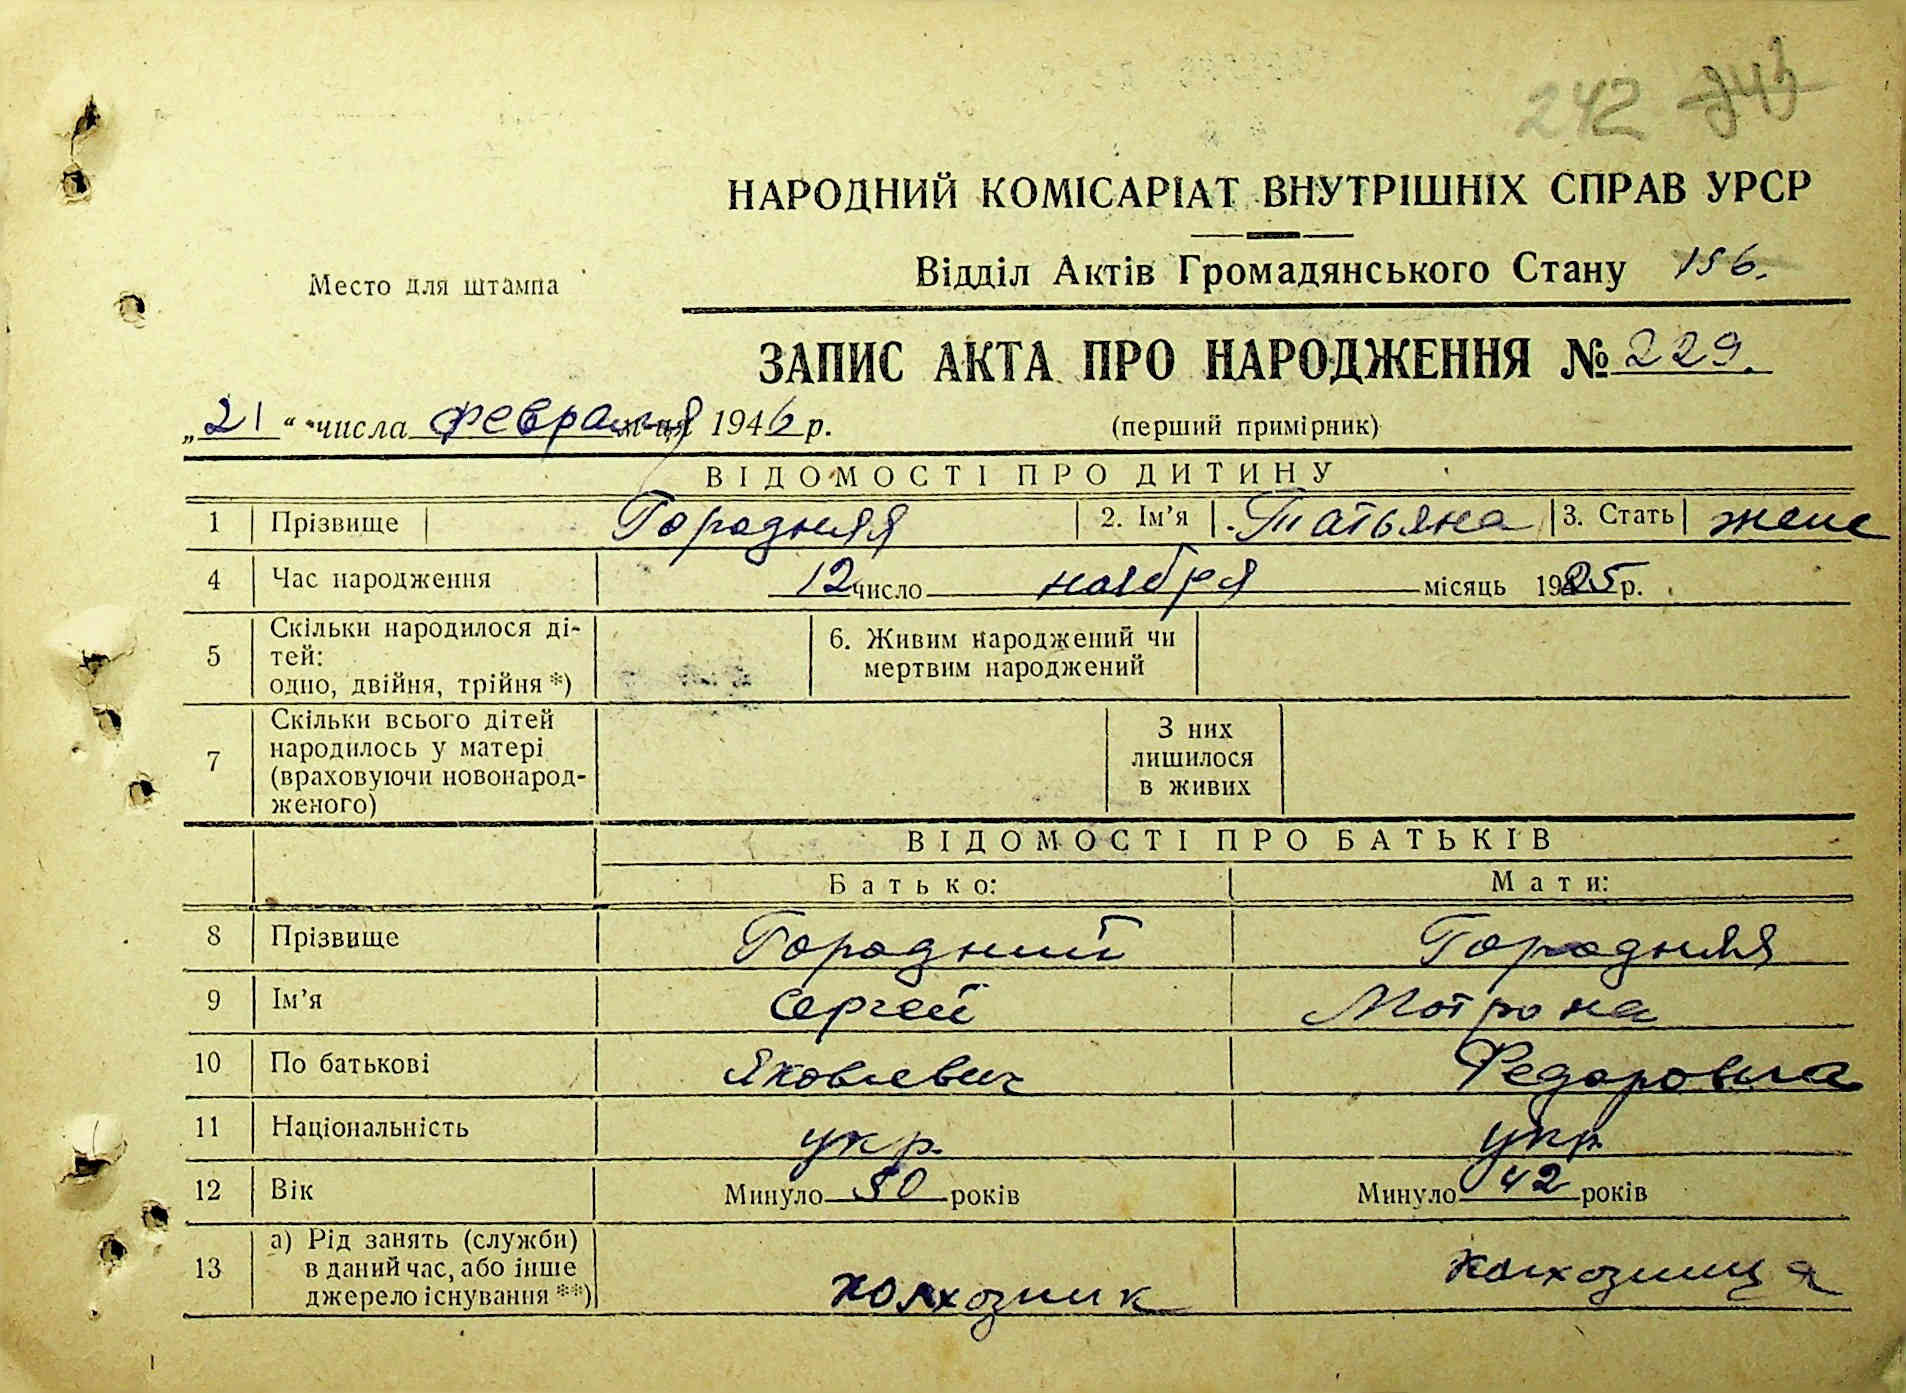 242 243
НАРОДНИЙ КОМІСАРІАТ ВНУТРІШНІХ СПРАВ УРСР
Место для штампа
Відділ Актів Громадянського Стану 156.
ЗАПИС АКТА ПРО НАРОДЖЕННЯ № 229.
„21“ числа февраля м-ця 1946 р. (перший примірник)
ВІДОМОСТІ ПРО ДИТИНУ
1 Прізвище Городняя 2. Ім’я Татьяна 3. Стать женс
4 Час народження 12 число ноября місяць 1925 р.
5 Скільки народилося ді-
тей:
одно, двійня, трійня *)
6. Живим народжений чи
мертвим народжений
7 Скільки всього дітей
народилось у матері
(враховуючи новонарод-
женого)
З них
лишилося
в живих
ВІДОМОСТІ ПРО БАТЬКІВ
Батько: Мати:
8 Прізвище Городний Городняя
9 Ім’я Сергей Мотрона
10 По батькові Яковлевич Федоровна
11 Національність укр. укр.
12 Вік Минуло 50 років Минуло 42 років
13 а) Рід занять (служби)
в даний час, або інше
джерело існування **)
колхозник колхозница